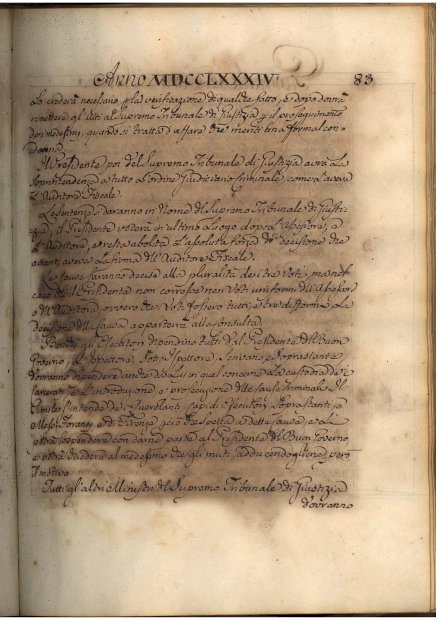 Anno MDCCLXXXIV. 83
lo crederà necessario p la verificazione di qualche fatto, e dopo dovrà
rimettere gl'Atti al Supremo Tribunale di Giustizia p il proseguimento
dei medesimi, quando si tratta d'affare che meriti una formal con-
danna.
Il Presidente poi del Supremo Tribunale di Giustizia avrà la
Soprintendenza a tutto l'ordine Giudiciario Criminale, come l'aveva
l'Auditore Fiscale.
Le Sentenze si daranno in Nome del Supremo Tribunale di Giusti-
zia, il Presidente voterà in ultimo luogo dopo l'Assessore, e
l'Auditore, e resta abolita l'assoluta forza di decisione che
avanti aveva la firma dell'Auditore Fiscale.
Le Cause saranno decise alla pluralità dei tre Voti, ma nel
caso che il Presidente non avesse Voti uniformi dell'Assessore
o dell'Auditore, ovvero tre Voti fossero tutti difformi, la
decisione della Causa apparterrà alla Consulta.
Benchè gli Esecutori dipendino tutti dal Presidente del Buon
Governo, l'Ispettore, Sotto Ispettore, Scrivani, e Soprastanti
dovranno dipendere anche da Lui in quel concerne la custodia dei
Carcerati, e l'introduzione, e prosecuzione delle Cause Criminali. Il
simile s'intenda dei Querelanti, Capi di Esecutori, Soprastanti, e
Messi Foranei, ed Provenga p ciò che spetta a dette Cause, e la
dovranno con darne parte al Presidente del Buon Governo,
e potrà chiedere al medesimo che gli muti, adducendogliene però
il motivo.
Tutti gl'altri Ministri del Supremo Tribunale di Giustizia
dovranno